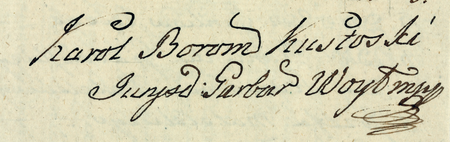 Karol Borom Kustoski
Jurysd: Garbar Woyt mp